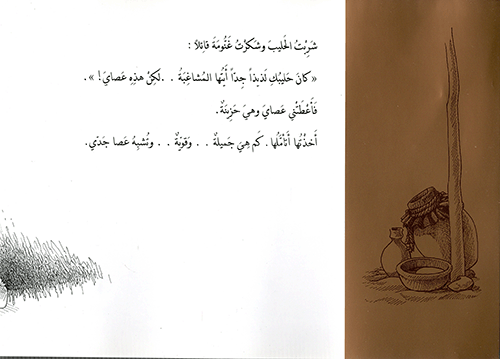 شَرِبْتُ الْحَليبَ وشَكَرْتُ غَنُّومَةَ قائِلاً :
«كانَ حَليبُكِ لَذيذاً جِدّاً أَيَّتُها المُشاغِبَةُ . . .لَكِنْ هذِهِ عَصايَ! ».
فَأَعْطَتْني عَصايَ وهيَ حَزِينَةٌ.
أَخذْتُها أَتأمَّلُها .كَم هِيَ جَميلةٌ . . وَقويّةٌ . . وتُشبِهُ عَصا جَدّي.